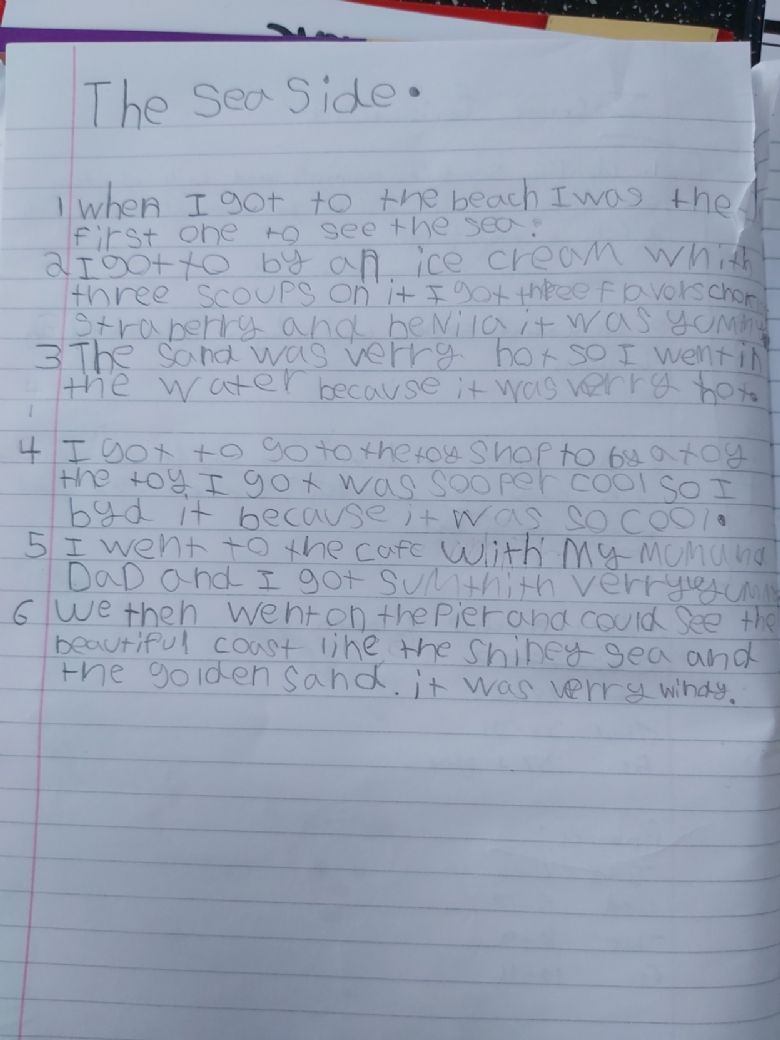 The Sea Side.
1 when I got to the beach I was the
first one to see the sea.
2 I got to by an ice cream whith
three scoups on it I got three flavors
straberry and neNila it was yummy
3 The sand was verry hot so I went in
the water because it was verry hot.
4 I got to go to the toy shop to by a toy
the toy I got was sooper cool so I
byd it because it was so cool.
5 I went to the cafe with my mum and
DaD and I got sumthith verry yummy
6 We then went on the Pier and could see the
beautiful coast line the shiney sea and
the golden sand. it was verry windy.